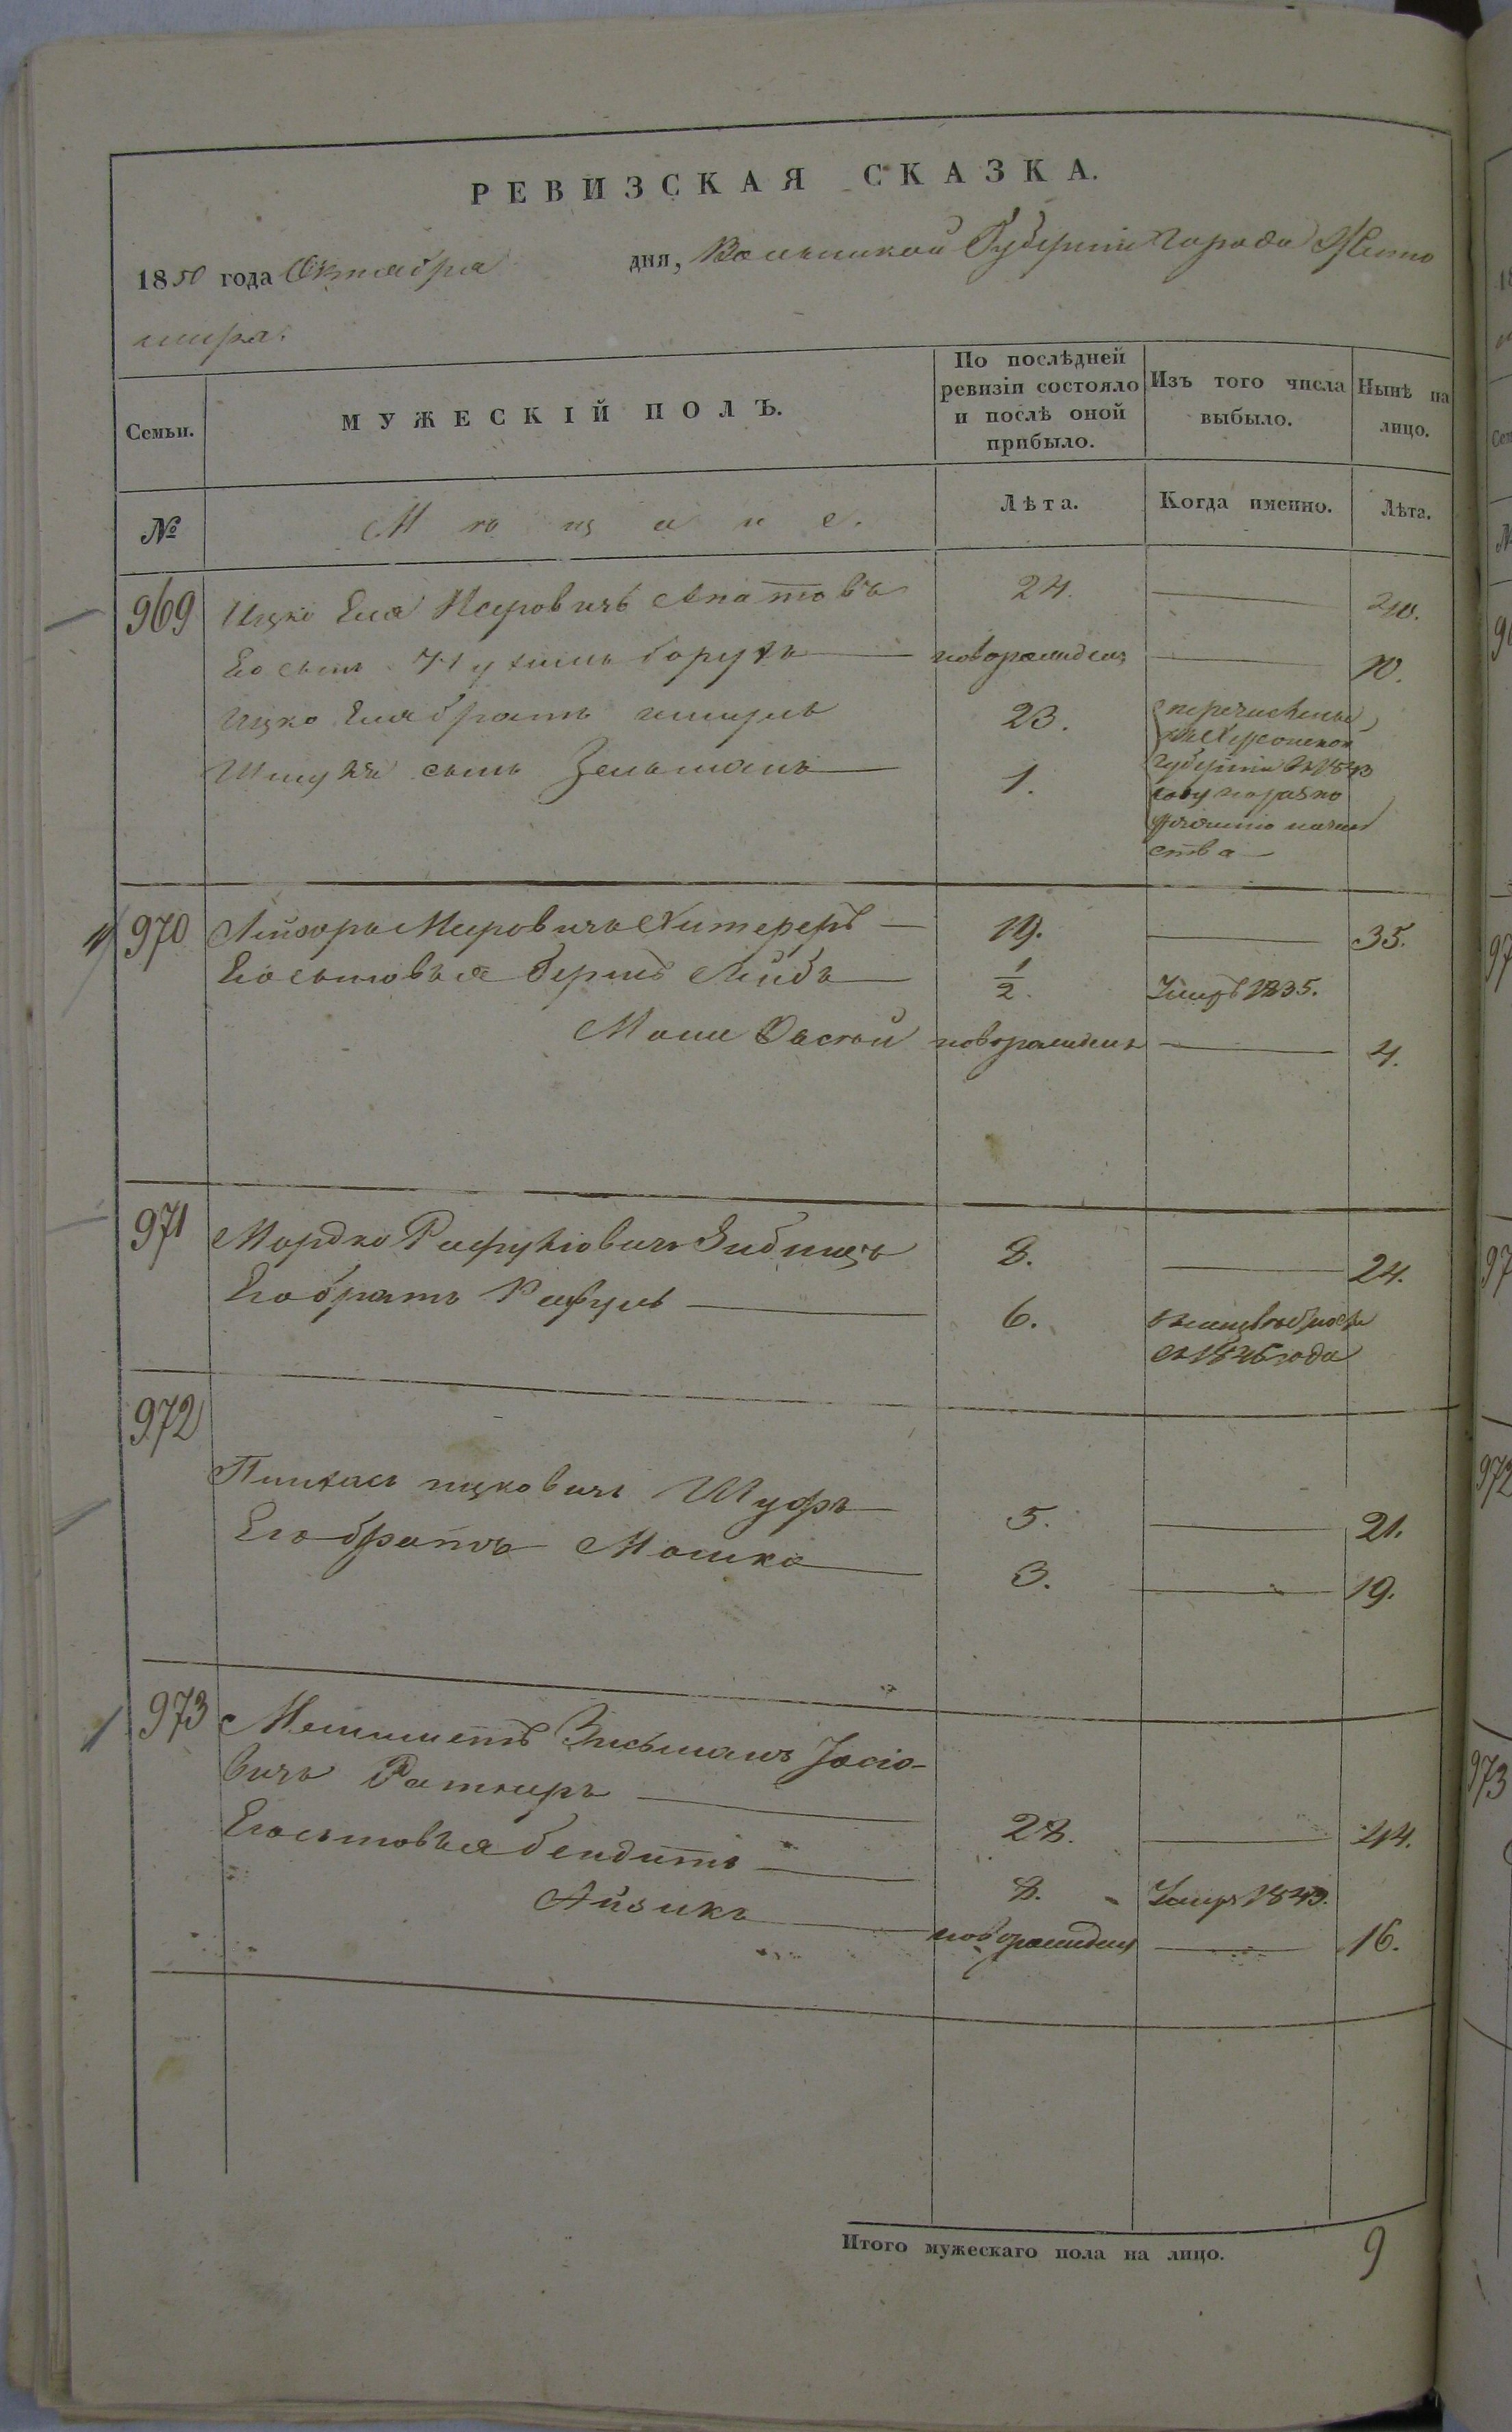 РЕВИЗСКАЯ СКАЗКА.
1850 года Октября дня, Волынской Губерніи города Жито
мира.
Семьи.
МУЖЕСКІЙ ПОЛЪ.
По послѣдней ревизіи состояло и послѣ оной прибыло.
Изъ того числа выбыло.
Нынѣ на лицо.
№
Мѣщане.
Лѣта.
Когда именно.
Лѣта.
969 Ицко Еля Мееровичъ 24. — 40.
Его сынъ Нухимъ Борухъ — новорожденъ — 10.
Ицко Еля братъ Шмуль 23. перечисленъ
Шмуля сынъ Зельманъ — 1. Херсонской
Губерніи въ 1843
году по распо
ства
970 Лейзоръ Меировичъ Хитереръ — 19. — 35.
Его сыновья Берко Лейбъ — 1/2. Умеръ 1835.
Моше новорожденъ — 4.
971 Мордко Рафуловичъ 8. — 24.
Его братъ Рафуль — 6.
съ 1846 года
972
Пинхасъ Ицковичъ Шуфъ — 5. — 21.
Его братъ Мошко — 3. — 19.
973 Зисьманъ Іосіо-
вичъ Ратнеръ — 28. — 44.
Его сыновья Бендитъ — 8. Умеръ 1849.
Айзикъ — новорожденъ — 16.
Итого мужескаго пола на лицо. 9